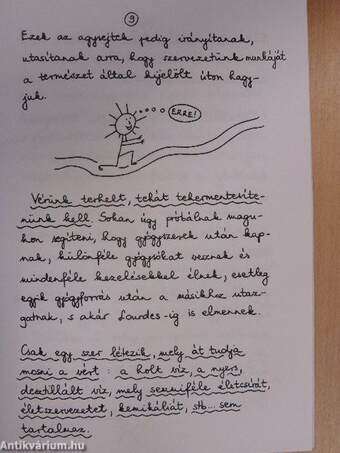 9
Ezek az agysejtek pedig irányítanak,
utasítanak arra, hogy szervezetünk munkáját
a természet által kijelölt úton hagy-
juk.
ERRE!
Vérünk terhelt, tehát tehermentesíte-
nünk kell. Sokan úgy próbálnak magu-
kon segíteni, hogy gyógyszerek után kap-
nak, különféle gyógysókat vesznek és
mindenféle kezelésekkel élnek, esetleg
egyik gyógyforrás után a másikhoz utaz-
gatnak, s akár Lourdes-ig is elmennek.
Csak egy szer létezik, mely át tudja
mosni a vért: a holt víz, a nyers,
desztillált víz, mely semmiféle életcsírát,
életszervezetet, kemikáliát, stb... sem
tartalmaz.
Antikvárium.hu